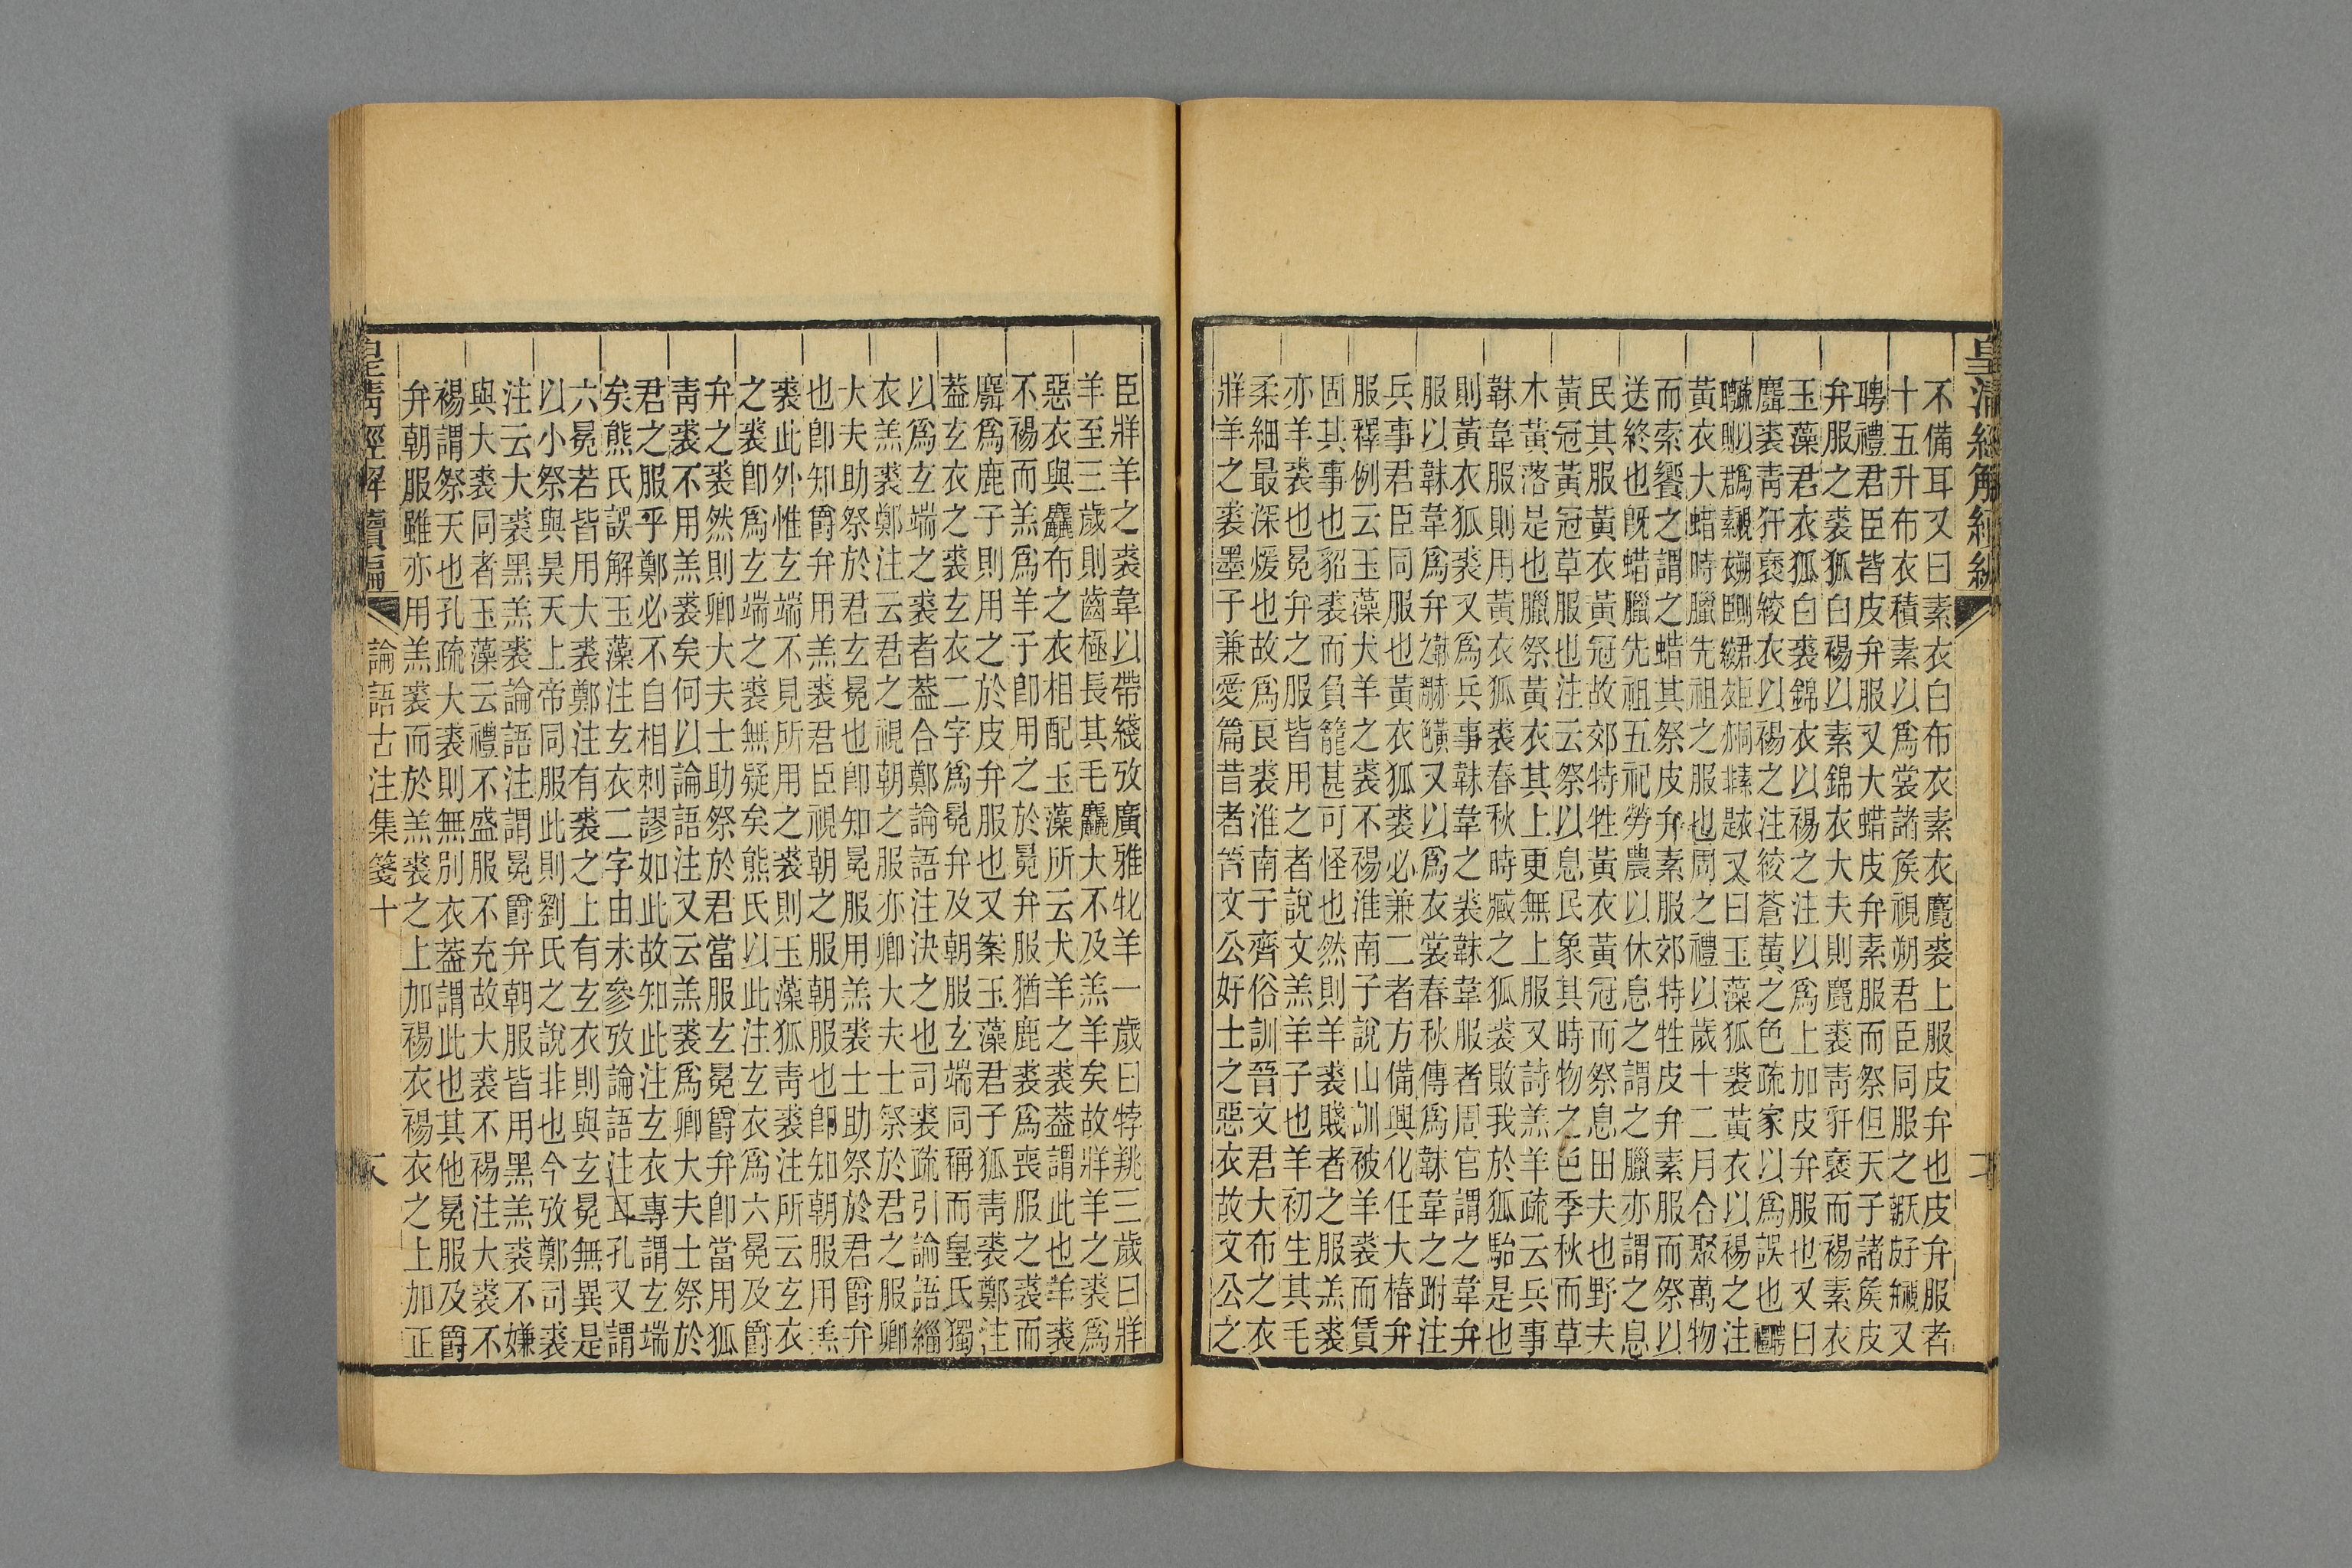 皇清經解續編
不備耳又曰素衣白布衣素衣麑裘上服皮弁也皮弁服者
十五升布衣積素以爲裳諸矦視朔君臣同服之又
聘禮君臣皆皮弁服又大蜡皮弁素服而祭但天子諸矦皮
弁服之裘狐白裼以素錦衣大夫則麑裘青豻褎而裼素衣
玉藻君衣狐白裘錦衣以裼之注以爲上加皮弁服也又曰
麛裘青豻褎絞衣以裼之注絞蒼黃之色疏家以爲誤也
又曰玉藻狐裘黃衣以裼之注
黃衣大蜡時臘先祖之服也周之禮以歲十二月合聚萬物
而索饗之謂之蜡其祭皮弁素服郊特牲皮弁素服而祭以
送終也旣蜡臘先祖五祀勞農以休息之謂之臘亦謂之息
民其服黃衣黃冠故郊特牲黃衣黃冠而祭息田夫也野夫
黃冠黃冠草服也注云祭以息民象其時物之色季秋而草
木黃落是也臘祭黃衣其上更無上服又詩羔羊疏云兵事
韎韋服則用黃衣狐裘春秋時臧之狐裘敗我於狐駘是也
則黃衣狐裘又爲兵事韎韋之裘韎韋服者周官謂之韋弁
服以韎韋爲弁又以爲衣裳春秋傳爲韎韋之跗注
兵事君臣同服也黃衣狐裘必兼二者方備與化任大椿弁
服釋例云玉藻犬羊之裘不裼淮南子說山訓被羊裘而賃
固其事也貂裘而負籠甚可怪也然則羊裘賤者之服羔裘
亦羊裘也冕弁之服皆用之者說文羔羊子也羊初生其毛
柔細最深煖也故爲良裘淮南子齊俗訓晉文君大布之衣
牂羊之裘墨子兼愛篇昔者晉文公好士之惡衣故文公之
臣牂羊之裘韋以帶綫攷廣雅牝羊一歲曰牸三歲曰牂
羊至三歲則齒極長其毛麤大不及羔羊矣故牂羊之裘爲
惡衣與麤布之衣相配玉藻所云犬羊之裘葢謂此也羊裘
不裼而羔爲羊子卽用之於冕弁服猶鹿裘爲喪服之裘而
麛爲鹿子則用之於皮弁服也又案玉藻君子狐青裘鄭注
葢玄衣之裘玄衣二字爲冕弁及朝服玄端同稱而皇氏獨
以爲玄端之裘者葢合鄭論語注決之也司裘疏引論語緇
衣羔裘鄭注云君之視朝之服亦卿大夫士祭於君之服卿
大夫助祭於君玄冕也卽知冕服用羔裘士助祭於君爵弁
也卽知爵弁用羔裘君臣視朝之服朝服也卽知朝服用羔
裘此外惟玄端不見所用之裘則玉藻狐青裘注所云玄衣
之裘卽爲玄端之裘無疑矣熊氏以此注玄衣爲六冕及爵
弁之裘然則卿大夫士助祭於君當服玄冕爵弁卽當用狐
青裘不用羔裘矣何以論語注又云羔裘爲卿大夫士祭於
君之服乎鄭必不自相刺謬如此故知此注玄衣專謂玄端
矣熊氏誤解玉藻注玄衣二字由未參攷論語注耳孔又謂
六冕若皆用大裘鄭注有裘之上有玄衣則與玄冕無異是
以小祭與昊天上帝同服此則劉氏之說非也今攷鄭司裘
注云大裘黑羔裘論語注謂冕爵弁朝服皆用黑羔裘不嫌
與大裘同者玉藻云禮不盛服不充故大裘不裼注大裘不
裼謂祭天也孔疏大裘則無別衣葢謂此也其他冕服及爵
弁朝服雖亦用羔裘而於羔裘之上加裼衣裼衣之上加正
皇清經解續編 論語古注集箋十